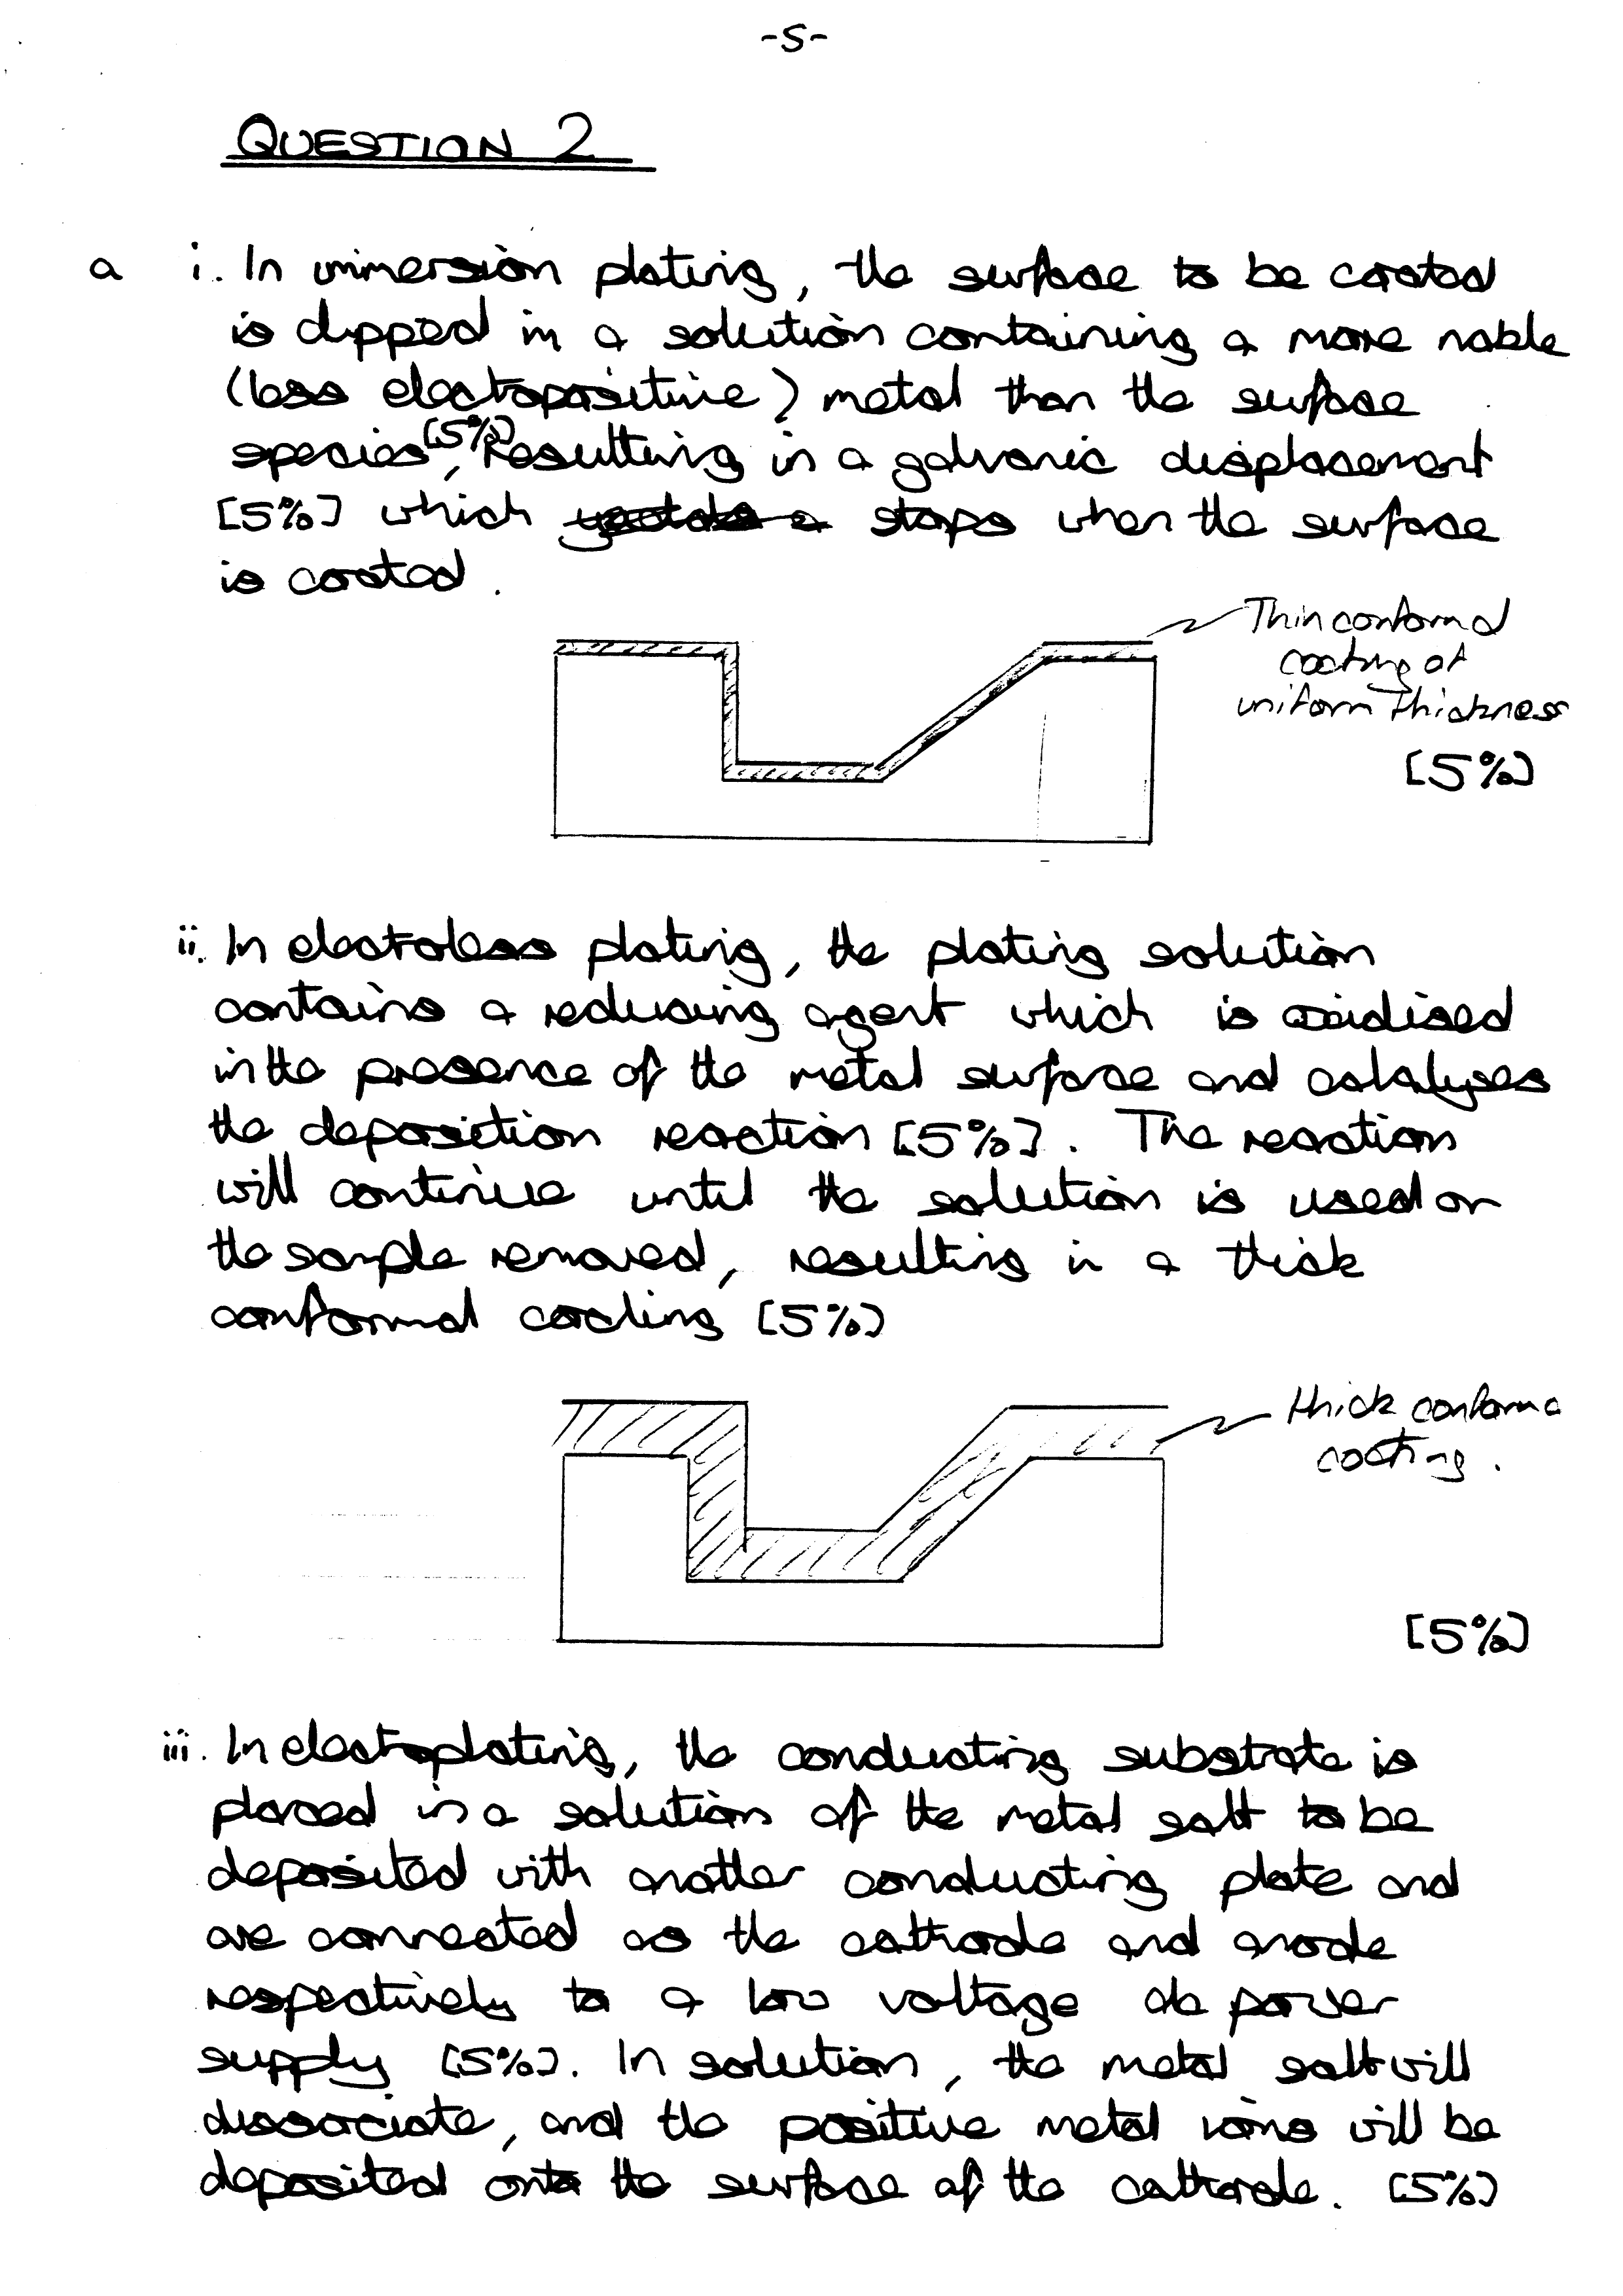 -5-
QUESTION 2
a i. In immersion plating, the surface to be coated
is dipped in a solution containing a more noble
(less electropositive) metal than the surface
species [5%], Resulting in a galvanic displacement
[5%] which stops when the surface
is coated.
Thin conformal
coating of
uniform thickness
[5%]
ii. In electroless plating, the plating solution
contains a reducing agent which is oxidised
in the presence of the metal surface and catalyses
the deposition reaction [5%]. The reaction
will continue until the solution is used or
the sample removed, resulting in a thick
conformal coating [5%]
thick conforma
coating.
[5%]
iii. In electroplating, the conducting substrate is
placed in a solution of the metal salt to be
deposited with another conducting plate and
are connected as the cathode and anode
respectively to a low voltage dc power
supply [5%]. In solution, the metal salt will
dissociate, and the positive metal ions will be
deposited onto the surface of the cathode. [5%]